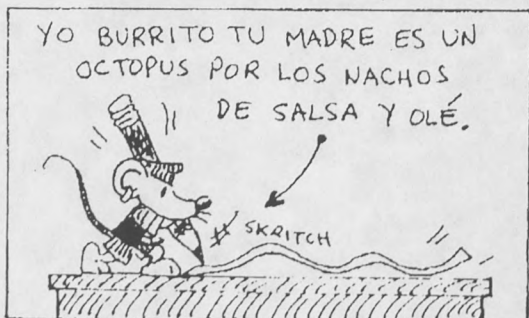 YO BURRITO TU MADRE ES UN
OCTOPUS POR LOS NACHOS
DE SALSA Y OLÉ.
SKRITCH